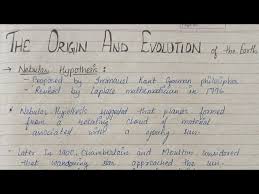 The Origin And Evolution of the Earth
→ Nebular Hypothesis :
- Proposed by Immanuel Kant German philosopher
- Revised by Laplace mathematician in 1796
• Nebular Hypothesis suggested that planets formed
from a rotating cloud of material
associated with a young sun.
• Later in 1900, Chamberlain and Moulton considered
that wandering star approached the sun.